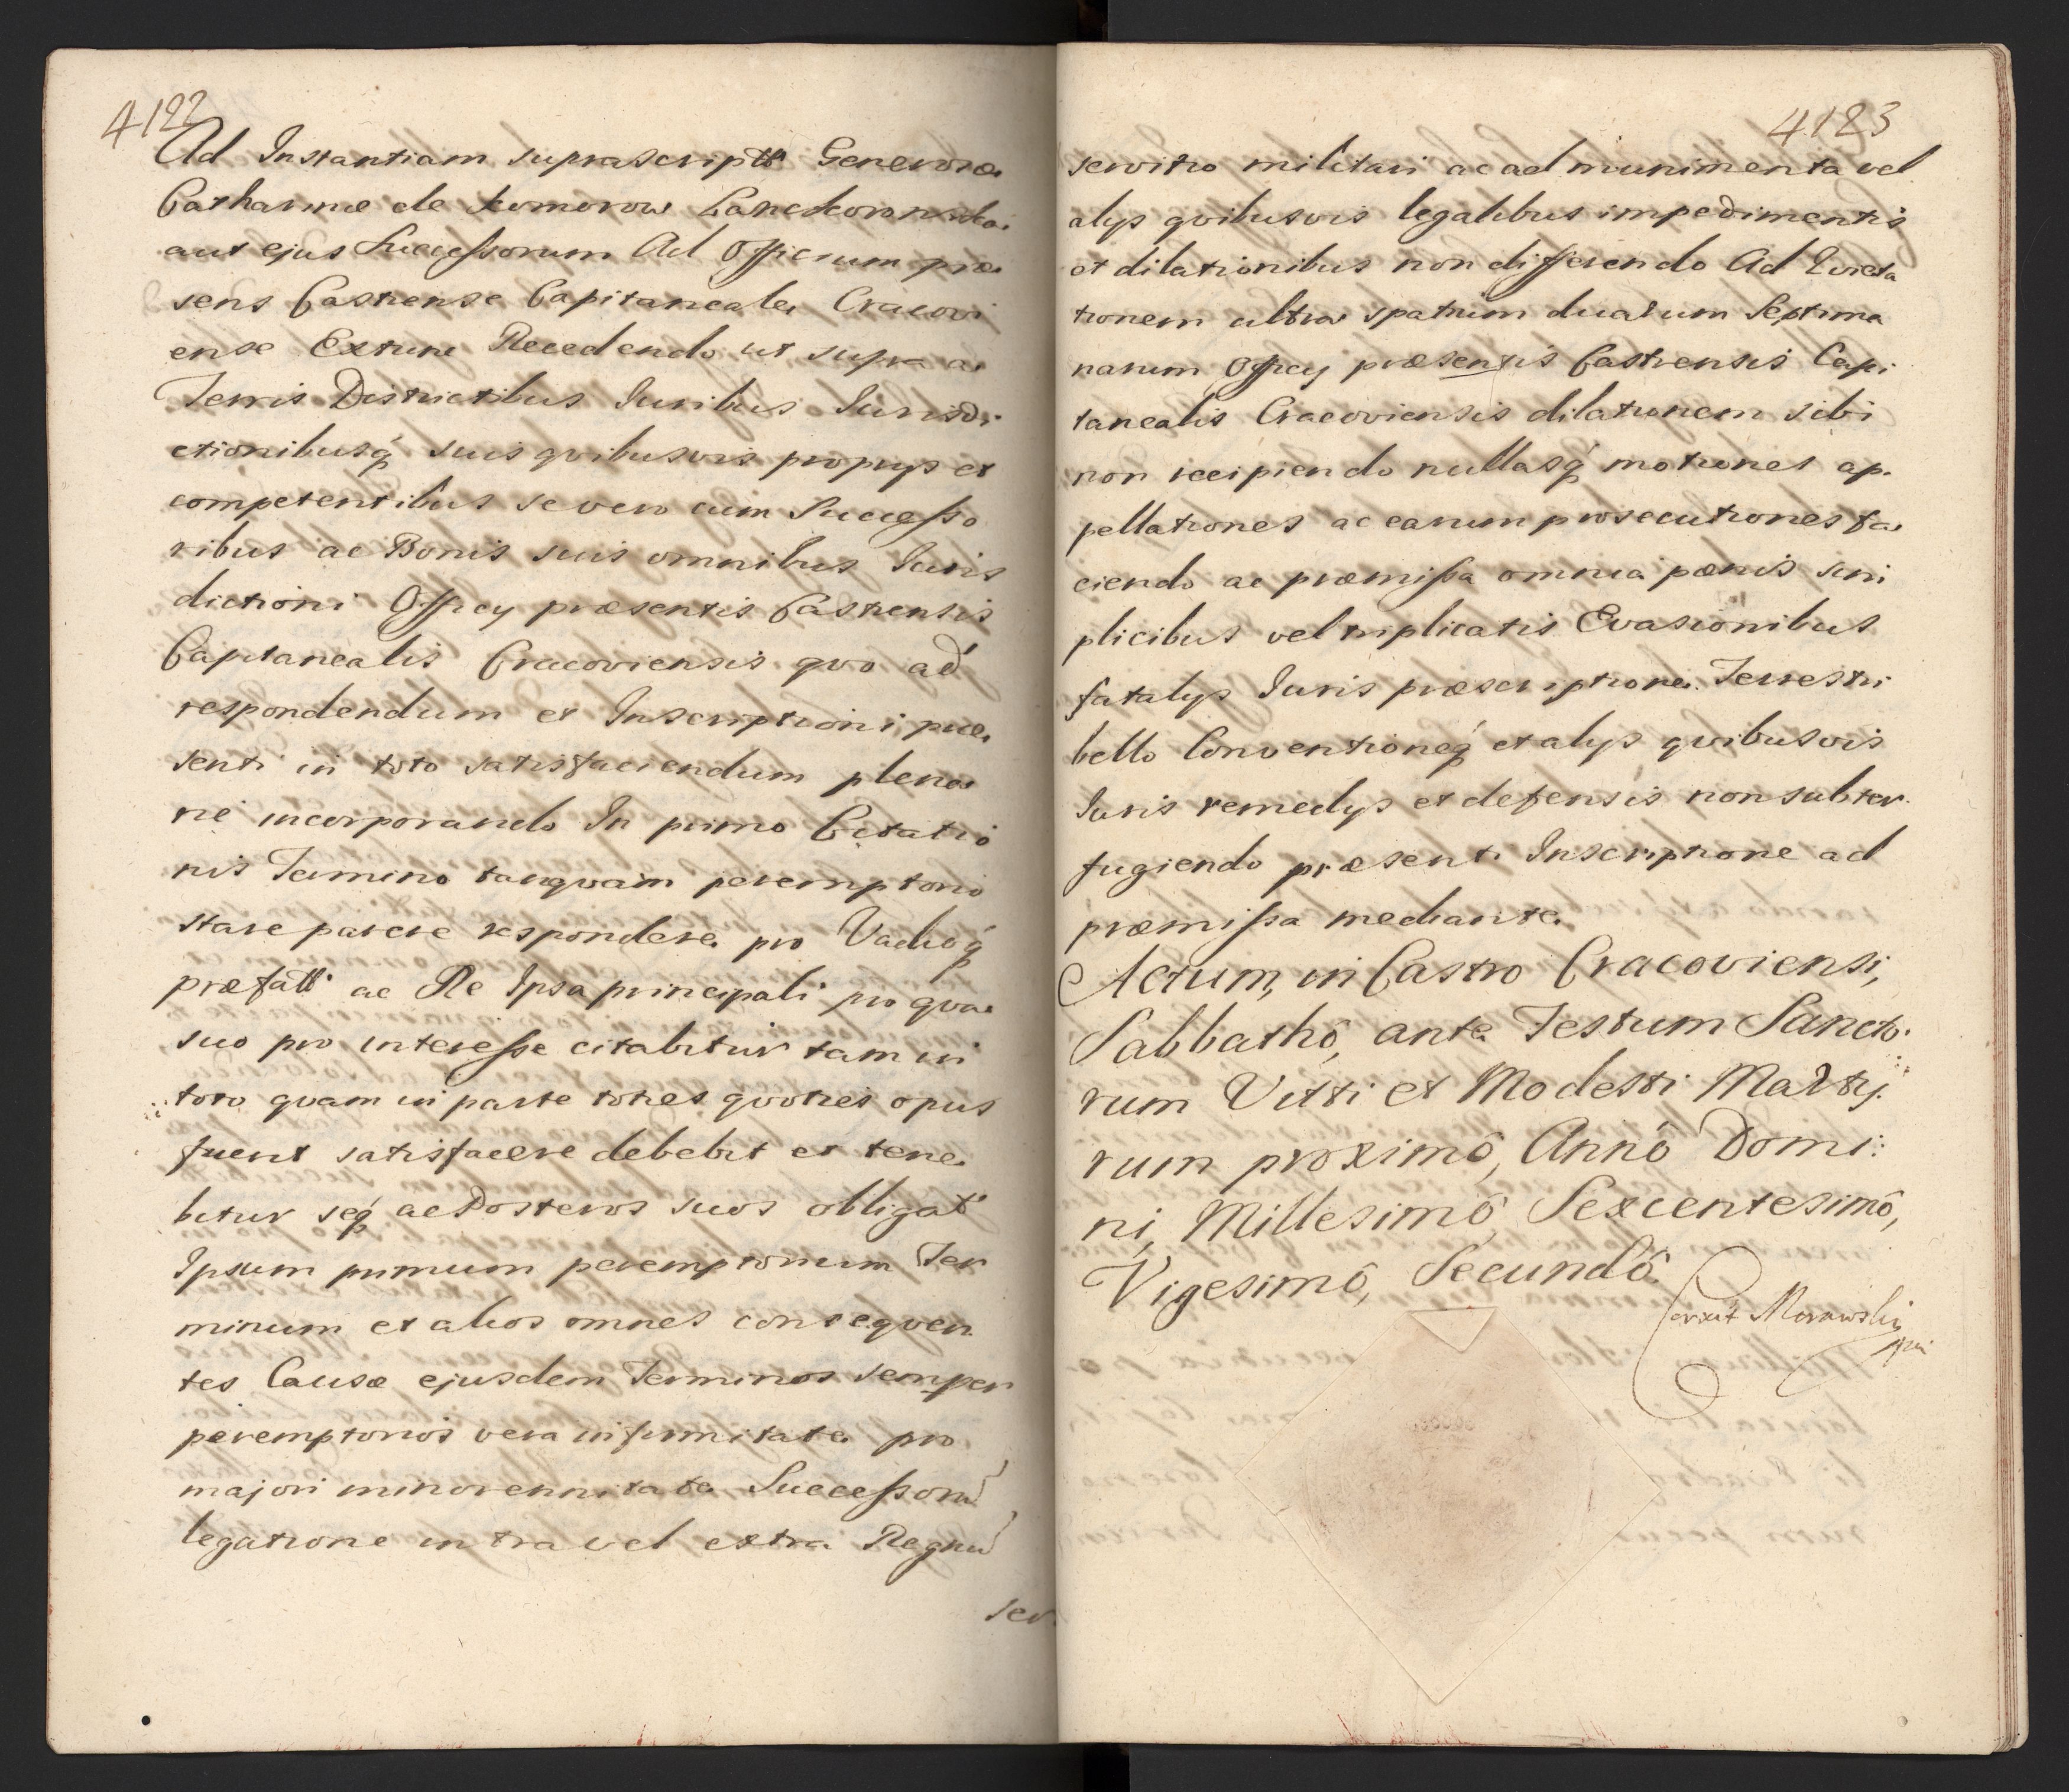 4122
Ad Instantiam suprascriptæ Generosæ
Catharinæ de Komorow Lanckoronska
aut ejus Successorum Ad Officium præ
sens Castrense Capitaneale Cracovi
ense Extune Recedendo ut supra a
Terris Districtibus Iuribus Iurisdi
ctionibusq́ suis qvibusvis proprys et
competentibus se vero cum Successo
ribus ac Bonis suis omnibus Iuris
dictioni Officy præsentis Castrensis
Capitanealis Cracoviensis qvo ad
respondendum et Inscriptioni præ
senti in toto satisfaciendum plena
rie incorporando In primo Citatio
nis Termino tanqvam peremptorio
stare parere respondere pro Vadioq́
præfatt ac Re Ipsa principali pro qva
suo pro interesse citabitur tam in
toto qvam in parte toties qvoties opus
fuerit satisfacere debebit et tene
bitur seq́ ac Posteros suos obligat
Ipsum primum peremptorium Ter
minum et alios omnes conseqven
tes Causæ ejusdem Terminos semper
peremptorios vera infirmitate pro
majori minorennitate Successorū
legatione intra vel extra Regnū
ser
4123
servitio militari ac ad munimenta vel
alys qvibusvis legalibus impedimentis
et dilationibus non differendo Ad Evicta
tionem ultra spatium duarum Septima
narum Officy præsentis Castrensis Capi
tanealis Cracoviensis dilationem sibi
non recipiendo nullasq́ motiones ap
pellationes ac earum prosecutiones fa
ciendo ac præmissa omnia pænis sim
plicibus vel triplicatis Evasionibus
fatalys Iuris præscriptione Terrestri
bello Conventioneq́ et alys qvibusvis
Iuris remedys et defensis non subter
fugiendo præsenti Inscriptione ad
præmissa mediante.
Actum, in Castro Cracoviensi,
Sabbathô, ante Festum Sancto:
rum Vitti et Modesti Marty:
rum proximô, Annô Domi:
ni, Millesimô, Sexcentesimô,
Vigesimô, Secundô.
Corrxit Morawski
mpri